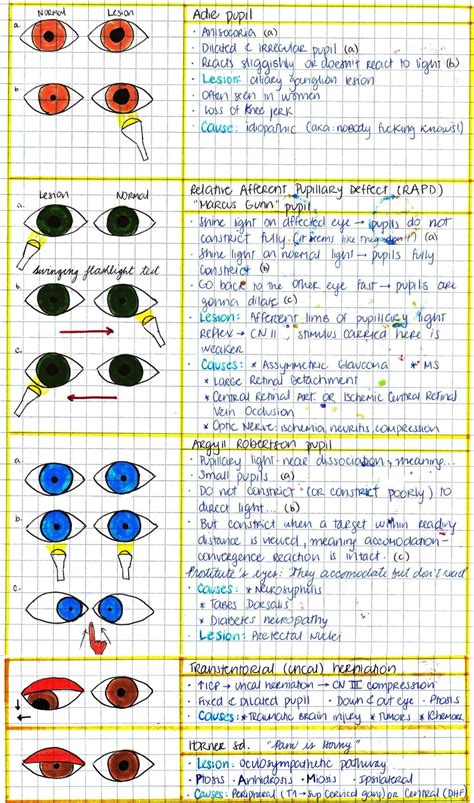 Normal Lesion
a.
b.
Adie pupil
· Anisocoria (a)
· Dilated & irregular pupil (a)
· Reacts sluggishly or doesn't react to light (b)
· Lesion: ciliary ganglion lesion
· Often seen in women
· Loss of knee jerk
· Cause: idiopathic (aka: nobody fucking knows!)
Lesion Normal
a.
swinging flashlight test
b.
c.
Relative Afferent Pupillary Deffect (RAPD)
"Marcus Gunn" pupil
· Shine light on affected eye → pupils do not
constrict fully (it seems like they don't!) (a)
· Shine light on normal light → pupils fully
constrict (b)
· Go back to the other eye fast → pupils are
gonna dilate (c)
· Lesion: Afferent limb of pupillary light
reflex → CN II, stimulus carried here is
weaker
· Causes: * Assymetric Glaucoma * MS
* Large Retinal Detachment
* Central Retinal Art. or Ischemic Central Retinal
Vein Occlusion
* Optic Nerve: ischemia, neuritis, compression
a.
b.
c.
Argyll Robertson pupil
· Pupillary light-near dissociation, meaning...
· Small pupils (a)
· Do not constrict (or constrict poorly) to
direct light... (b)
· But constrict when a target within reading
distance is viewed, meaning accomodation-
convergence reaction is intact. (c)
Prostitute's eyes: They accomodate but don't react
· Causes: * Neurosyphilis
* Tabes Dorsalis
* Diabetes neuropathy
· Lesion: Pretectal Nuclei
Transtentorial (uncal) herniation
· ↑ICP → uncal herniation → CN III compression
· Fixed & dilated pupil · Down & out eye · Ptosis
· Causes: * Traumatic brain injury * Tumors
Horner sd. "Pam is Horny"
· Lesion: oculosympathetic pathway
· Ptosis · Anhidrosis · Miosis · Ipsilateral
· Causes: Peripheral (T1 → sup cervical gang) or Central (DHP